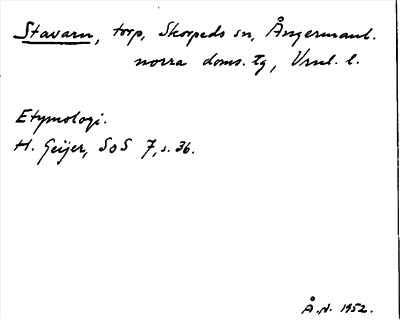 Stavarn, torp, Skorpeds sn, Ångermanl.
norra doms. tg, Vnrl. l.
Etymologi.
H. Geijer, SoS 7, s. 36.
Å. N. 1952.